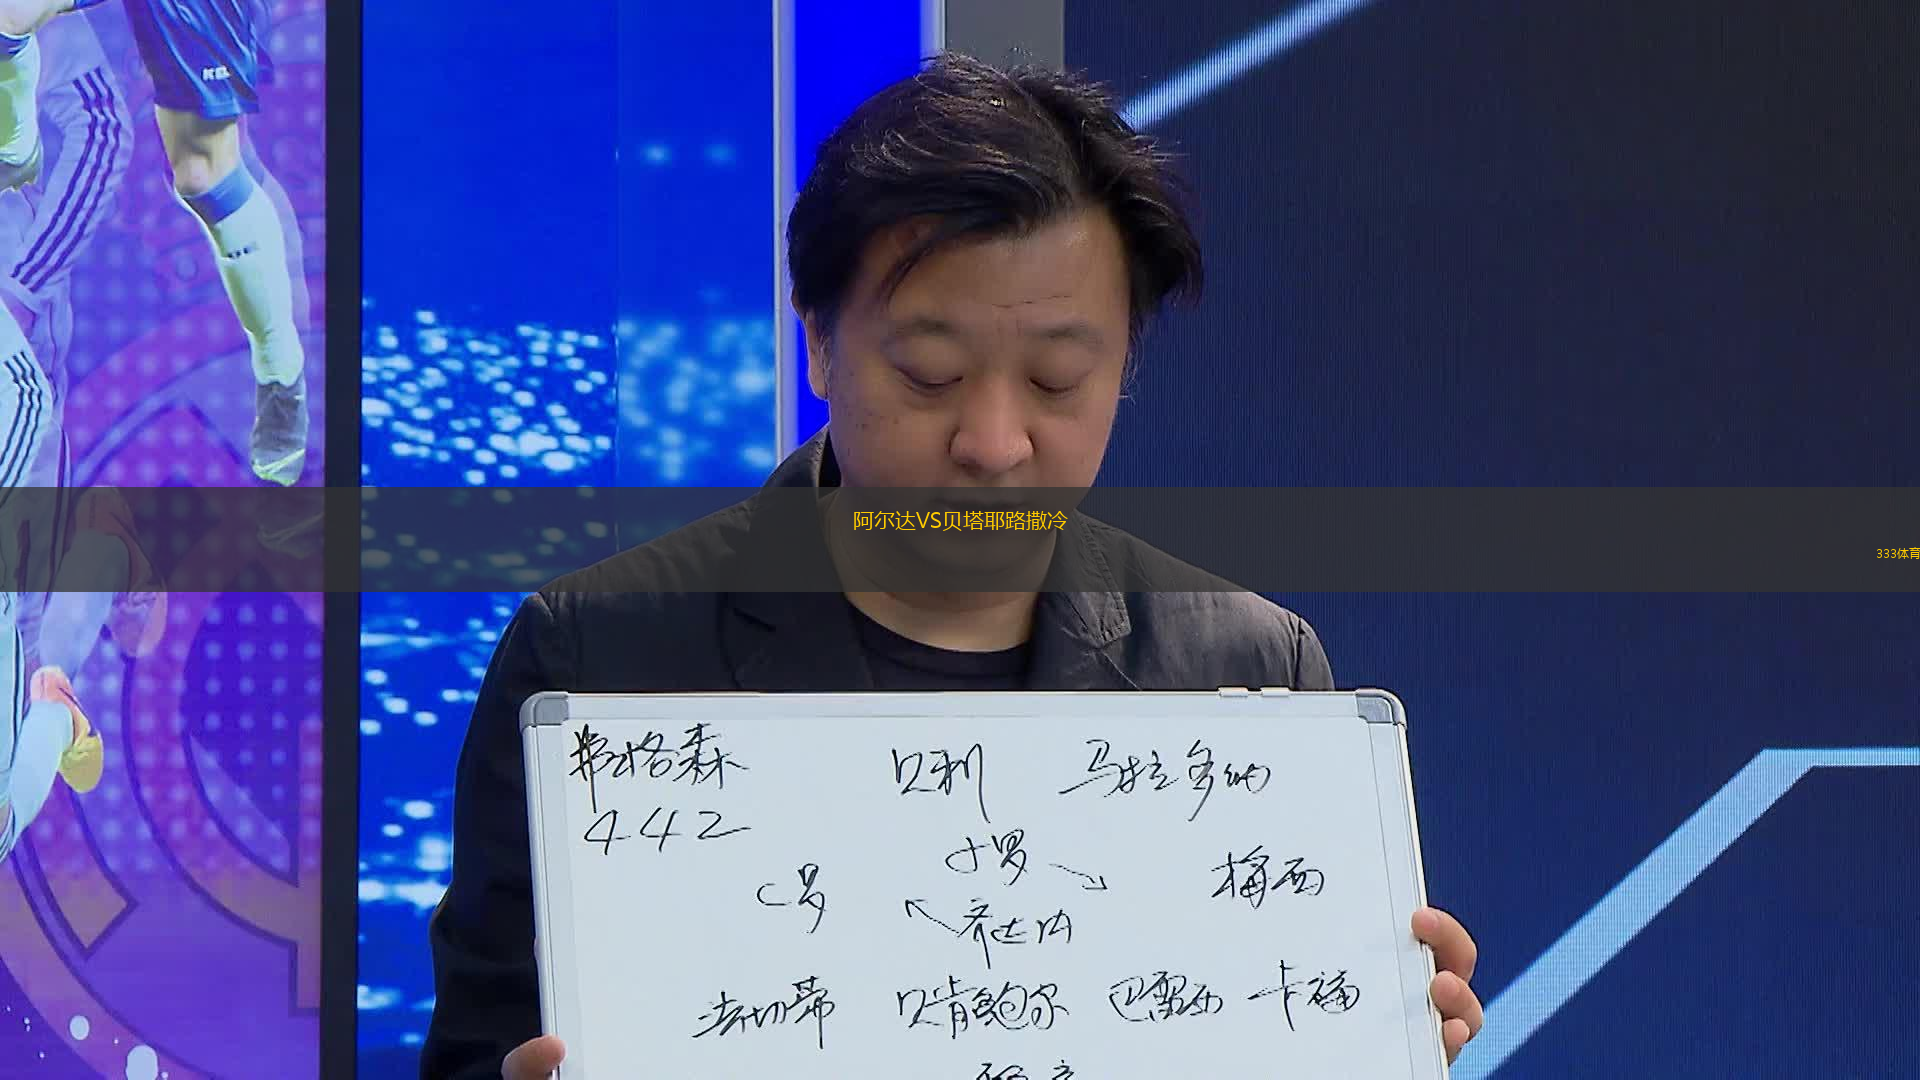 KEL
阿尔达VS贝塔耶路撒冷
333体育
弗格森 贝利 马拉多纳
442
小罗
C罗 梅西
齐达内
法切蒂 贝肯鲍尔 巴雷西 卡福